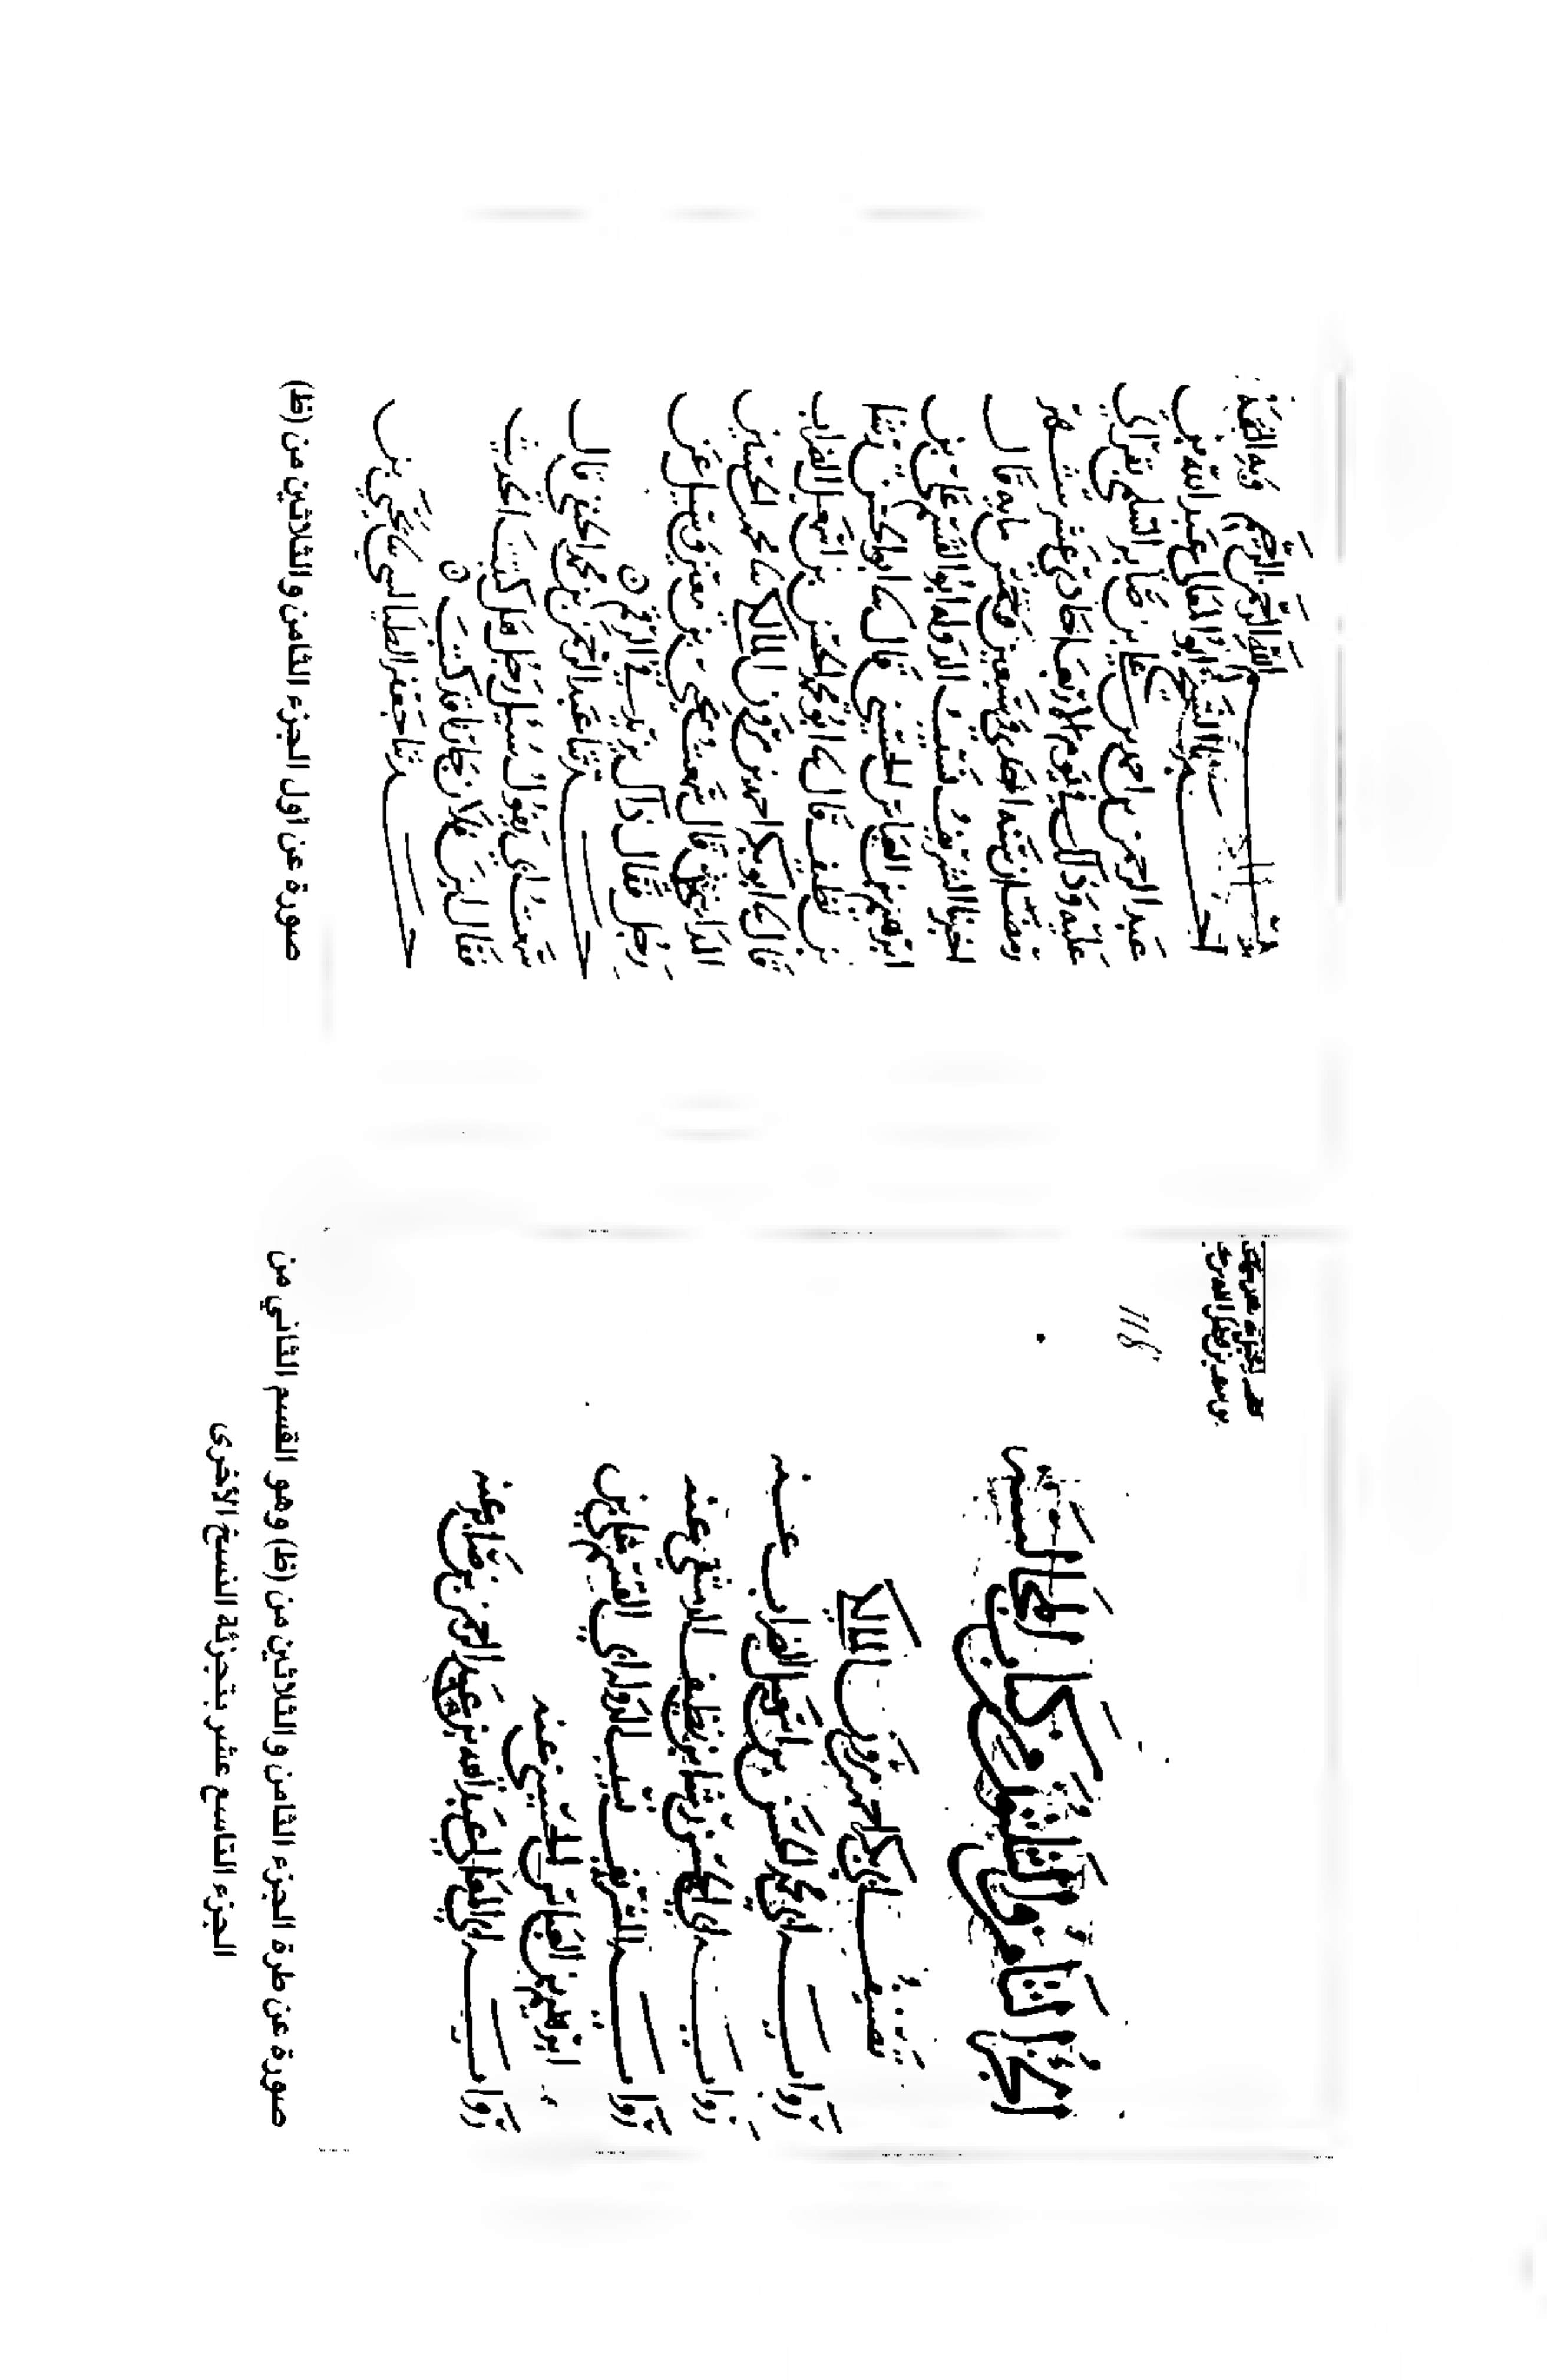 الجزء الثامن والثلاثون من كتاب المجالسة
تصنيف أبي بكر احمد بن مروان المالكي
رواية أبي محمد الحسن بن اسمعيل الضراب عنه
رواية أبي الحسن رشا بن نظيف الدمشقي عنه
رواية الشريف نسيب الدولة أبي القسم علي بن
ابرهيم بن العباس الحسيني عنه
رواية أبي المعالي عبد الله بن عبد الرحمن بن صابر عنه
صورة عن طرة الجزء الثامن والثلاثين من (ظ) وهو القسم الثاني من
الجزء التاسع عشر بتجزئة النسخ الأخرى
بسم الله الرحمن الرحيم وبه الثقة
اخبرنا الشيخ ابو المعالي عبد الله بن
عبد الرحمن بن احمد بن علي بن صابر السلمي بقراءتي
عليه وذلك في يوم الاربعا حادي عشر شهر
رمضان سنة احدى وسبعين وخمس مايه قال
اخبرنا الشريف نسيب الدوله ابو القسم علي بن
ابرهيم بن العباس الحسيني قال ثنا ابو الحسن رشا
بن نظيف قال ثنا ابو محمد الحسن بن اسمعيل الضراب
قال ثنا ابو بكر احمد بن مروان المالكي ثنا محمد بن الحسين
قال سمعت يحيى بن معين وسئل عن
رجل فقال ذاك يزيد في الرقم
حدثنا عبد الرحمن بن محمد الحنفي قال
سمعت ابي يقول سئل رجل هل كتبت الحديث
فقال
حدثنا جعفر الطيالسي ثنا يحيى بن
صورة عن أول الجزء الثامن والثلاثين من (ظ)